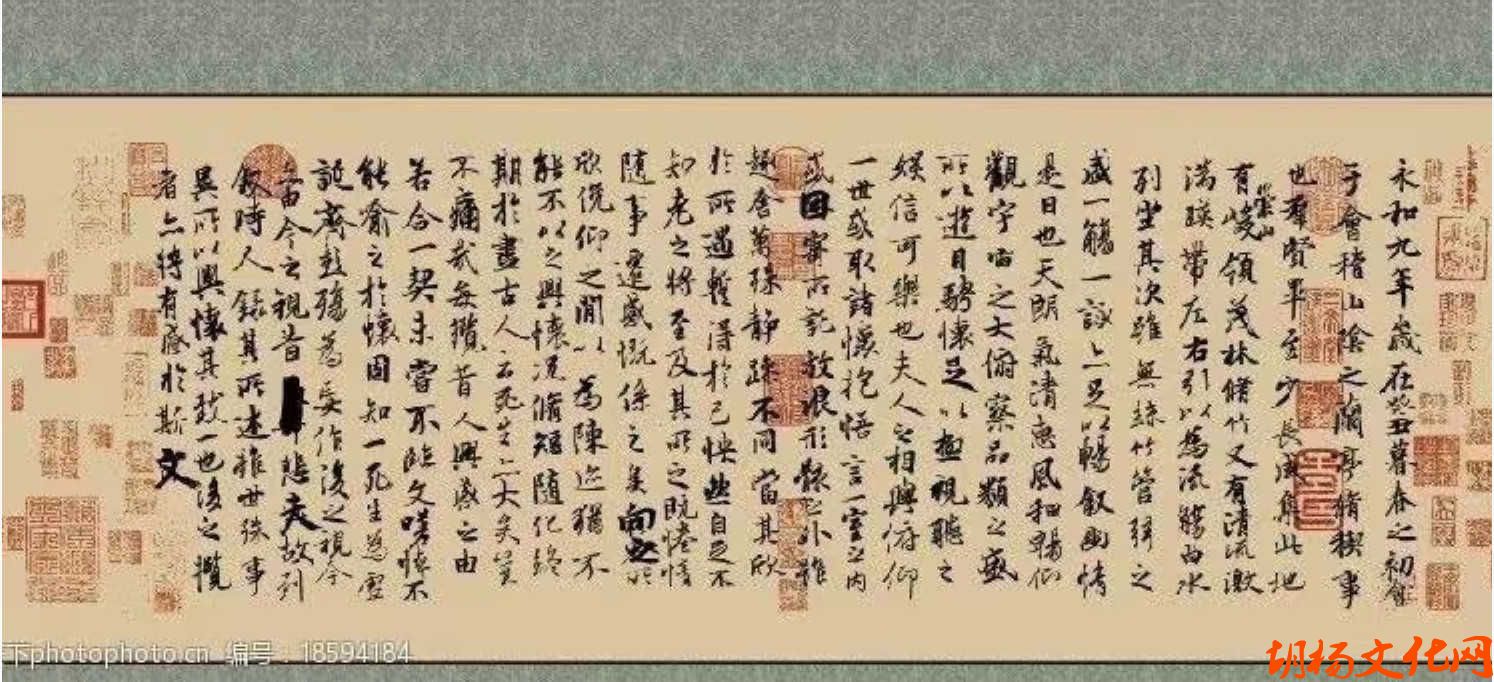 永和九年歲在癸丑暮春之初會
于會稽山陰之蘭亭脩稧事
也羣賢畢至少長咸集此地
有崇山峻領茂林脩竹又有清流激
湍暎帶左右引以為流觴曲水
列坐其次雖無絲竹管弦之
盛一觴一詠亦足以暢敘幽情
是日也天朗氣清惠風和暢仰
觀宇宙之大俯察品類之盛
所以遊目騁懷足以極視聽之
娛信可樂也夫人之相與俯仰
一世或取諸懷抱悟言一室之內
或因寄所託放浪形骸之外雖
趣舍萬殊靜躁不同當其欣
於所遇暫得於己怏然自足不
知老之將至及其所之既惓情
隨事遷感慨係之矣向之所
欣俛仰之閒以為陳迹猶不
能不以之興懷況脩短隨化終
期於盡古人云死生亦大矣豈
不痛哉每攬昔人興感之由
若合一契未嘗不臨文嗟悼不
能喻之於懷固知一死生為虛
誕齊彭殤為妄作後之視今
亦由今之視昔悲夫故列
敘時人錄其所述雖世殊事
異所以興懷其致一也後之攬
者亦將有感於斯文
下photophoto.cn 编号：18594184
胡杨文化网